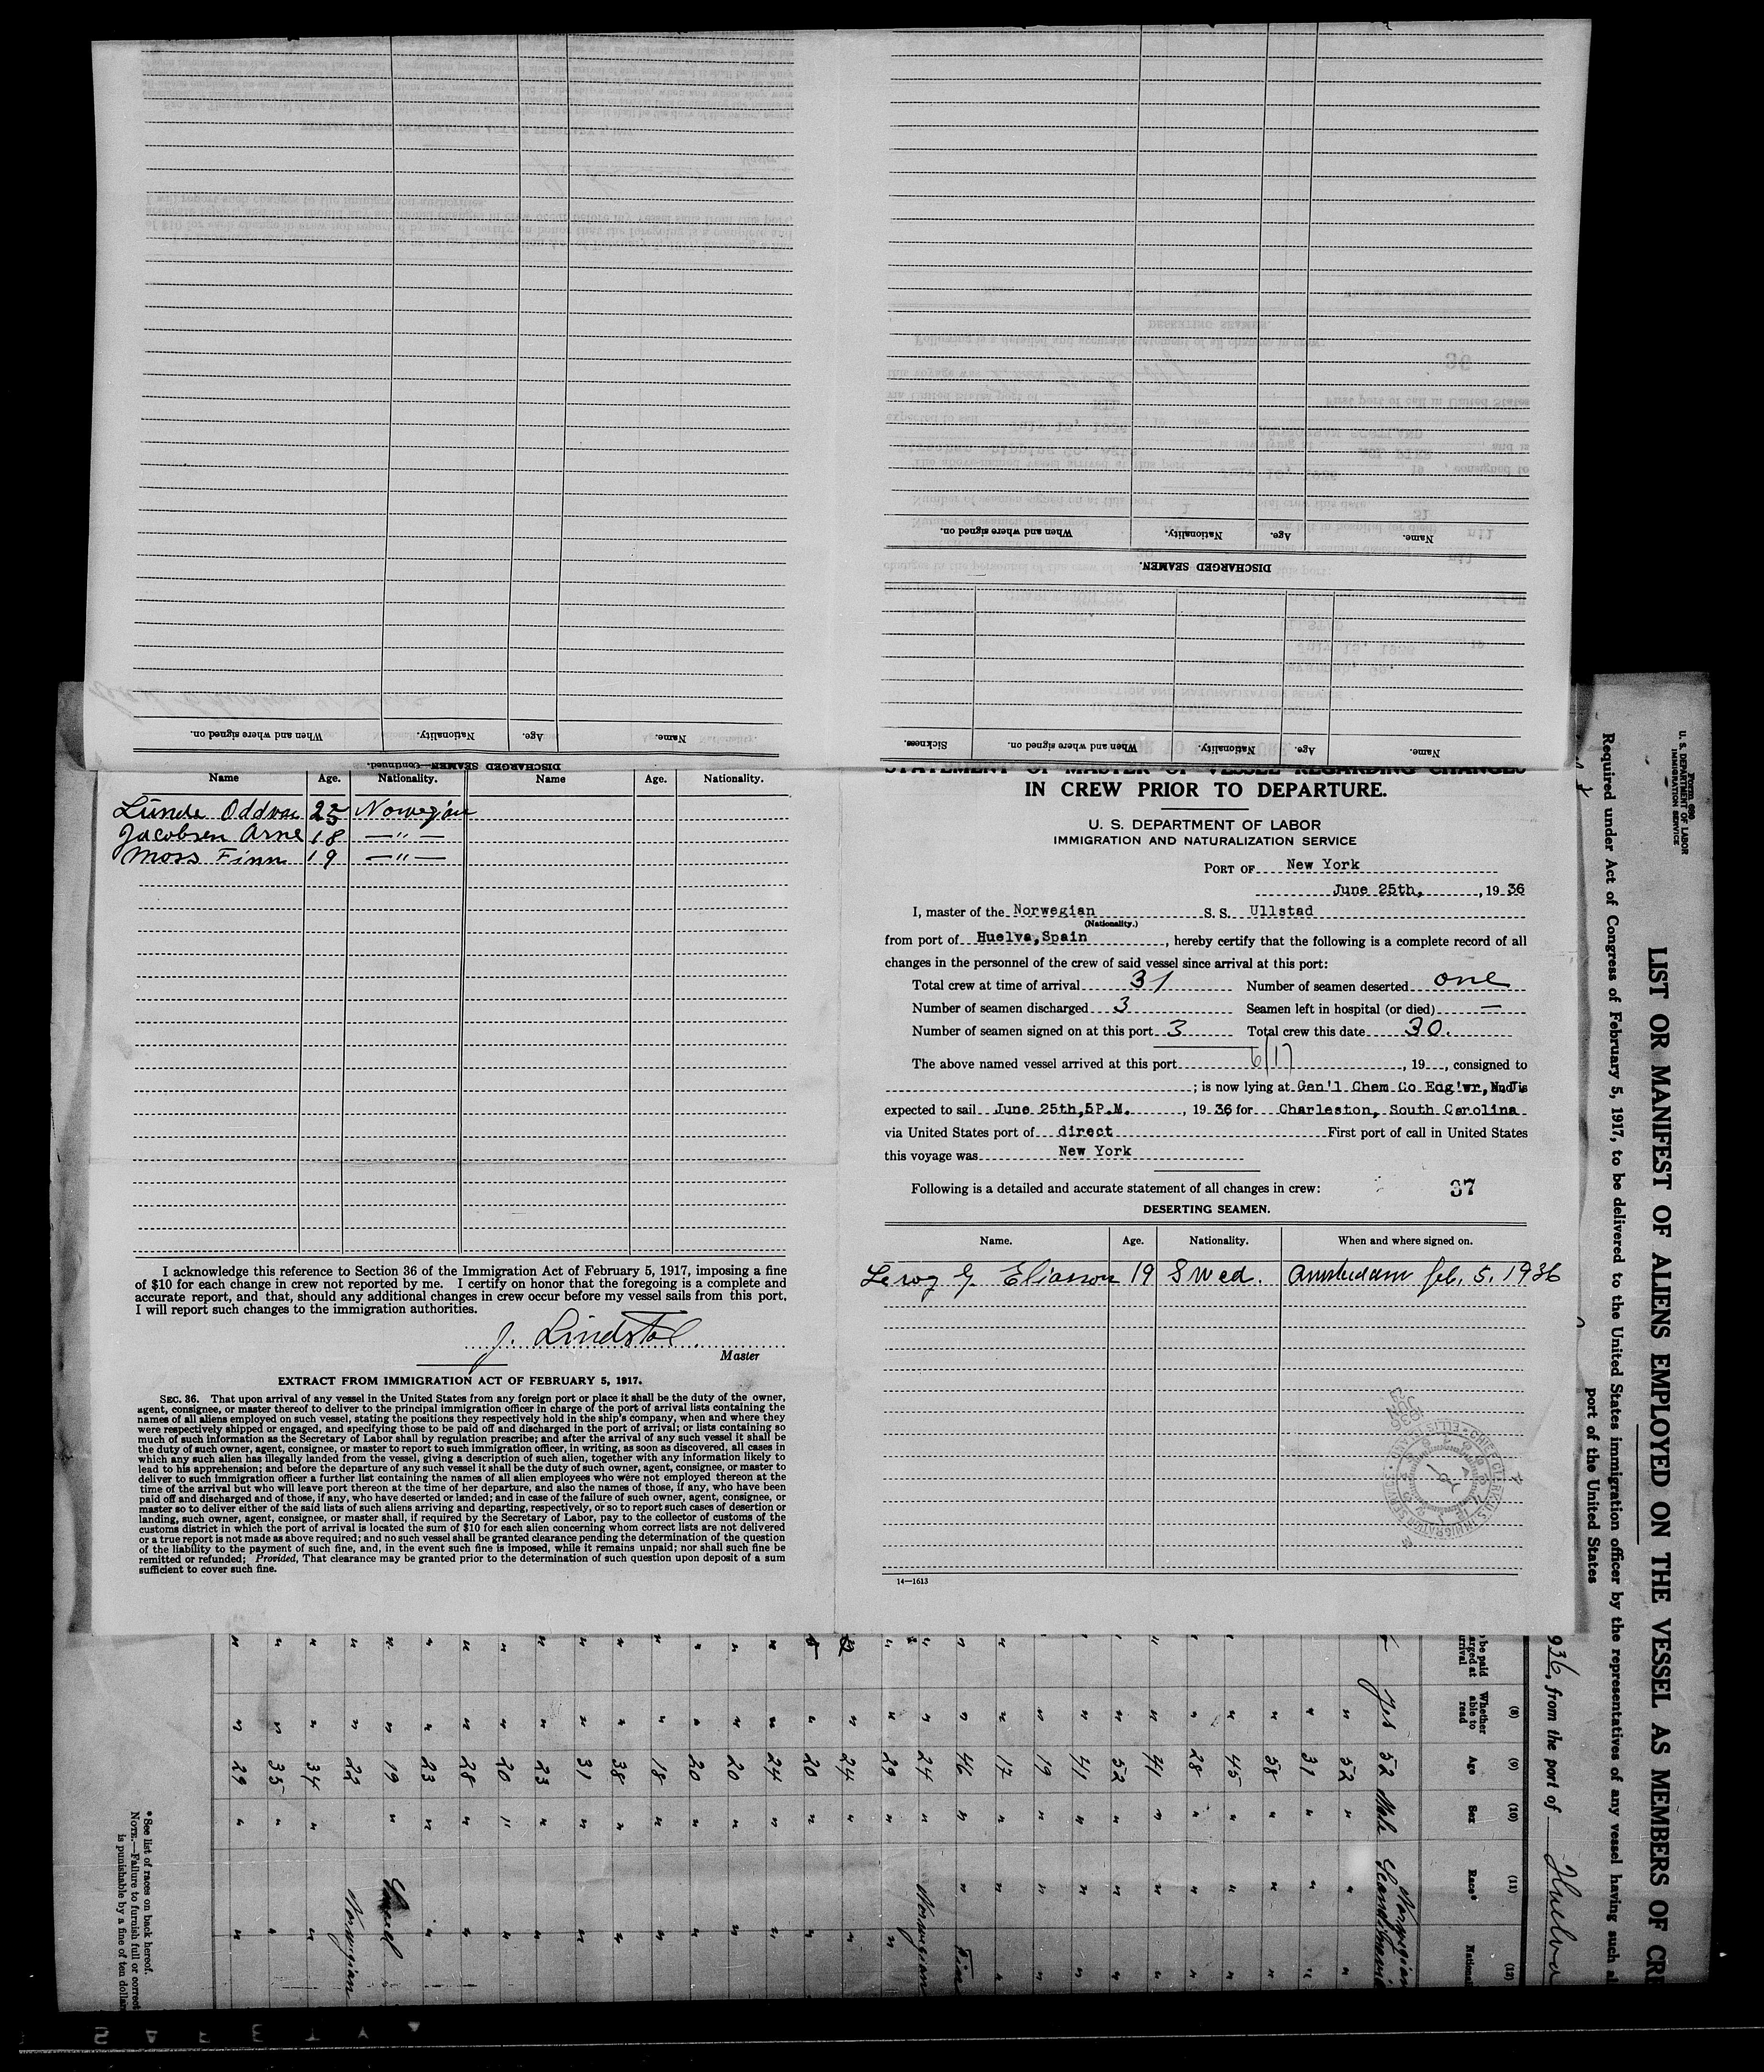 When and where signed on.
Nationality.
Age.
Name.
DISCHARGED SEAMEN—Continued.
Name.
Age.
Nationality.
When and where signed on.
DISCHARGED SEAMEN.
Name.
Age.
Nationality.
When and where signed on.
Sickness.
Name Age. Nationality. Name Age. Nationality.
Lunde Oddvar 25 Norwegian
Jacobsen Arne 18 —"—
Moss Finn 19 —"—
I acknowledge this reference to Section 36 of the Immigration Act of February 5, 1917, imposing a fine
of $10 for each change in crew not reported by me. I certify on honor that the foregoing is a complete and
accurate report, and that, should any additional changes in crew occur before my vessel sails from this port,
I will report such changes to the immigration authorities.
J. Lindstol
Master
EXTRACT FROM IMMIGRATION ACT OF FEBRUARY 5, 1917.
SEC. 36. That upon arrival of any vessel in the United States from any foreign port or place it shall be the duty of the owner,
agent, consignee, or master thereof to deliver to the principal immigration officer in charge of the port of arrival lists containing the
names of all aliens employed on such vessel, stating the positions they respectively hold in the ship's company, when and where they
were respectively shipped or engaged, and specifying those to be paid off and discharged in the port of arrival; or lists containing so
much of such information as the Secretary of Labor shall by regulation prescribe; and after the arrival of any such vessel it shall be
the duty of such owner, agent, consignee, or master to report to such immigration officer, in writing, as soon as discovered, all cases in
which any such alien has illegally landed from the vessel, giving a description of such alien, together with any information likely to
lead to his apprehension; and before the departure of any such vessel it shall be the duty of such owner, agent, consignee, or master to
deliver to such immigration officer a further list containing the names of all alien employees who were not employed thereon at the
time of the arrival but who will leave port thereon at the time of her departure, and also the names of those, if any, who have been
paid off and discharged and of those, if any, who have deserted or landed; and in case of the failure of such owner, agent, consignee, or
master so to deliver either of the said lists of such aliens arriving and departing, respectively, or so to report such cases of desertion or
landing, such owner, agent, consignee, or master shall, if required by the Secretary of Labor, pay to the collector of customs of the
customs district in which the port of arrival is located the sum of $10 for each alien concerning whom correct lists are not delivered
or a true report is not made as above required; and no such vessel shall be granted clearance pending the determination of the question
of the liability to the payment of such fine, and, in the event such fine is imposed, while it remains unpaid; nor shall such fine be
remitted or refunded; Provided, That clearance may be granted prior to the determination of such question upon deposit of a sum
sufficient to cover such fine.
STATEMENT OF MASTER OF VESSEL REGARDING CHANGES
IN CREW PRIOR TO DEPARTURE.
U. S. DEPARTMENT OF LABOR
IMMIGRATION AND NATURALIZATION SERVICE
PORT OF New York
June 25th, , 19 36
I, master of the Norwegian S. S. Ullstad
(Nationality.)
from port of Huelva,Spain , hereby certify that the following is a complete record of all
changes in the personnel of the crew of said vessel since arrival at this port:
Total crew at time of arrival 31 Number of seamen deserted one
Number of seamen discharged 3 Seamen left in hospital (or died) —
Number of seamen signed on at this port 3 Total crew this date 30.
The above named vessel arrived at this port 6/17 , 19 , consigned to
; is now lying at Gen'l Chem Co Edg'wr, NJ is
expected to sail June 25th,5P.M. , 19 36 for Charleston, South Carolina
via United States port of direct First port of call in United States
this voyage was New York
Following is a detailed and accurate statement of all changes in crew: 37
DESERTING SEAMEN.
Name. Age. Nationality. When and where signed on.
Leroy G Eliasson 19 Swed. Amsterdam feb. 5. 1936
14—1613
Form 680
U. S. DEPARTMENT OF LABOR
IMMIGRATION SERVICE
LIST OR MANIFEST OF ALIENS EMPLOYED ON THE VESSEL AS MEMBERS OF CR
Required under Act of Congress of February 5, 1917, to be delivered to the United States immigration officer by the representatives of any vessel having such al
port of the United States
936, from the port of Huelva
(8) (9) (10) (11) (12)
Whether able to read Age Sex Race* National
Yes 52 Male Scandinavia Norwegian
" 52 " "
" 31 " "
" 58 " "
" 45 " "
" 28 " "
" 41 " "
" 52 " "
" 41 " "
" 19 " "
" 17 " "
" 46 " "
" 24 " Norwegian
" 29 " "
" 24 " "
" 20 " "
" 24 " "
" 20 " "
" 20 " "
" 18 " "
" 38 " "
" 31 " "
" 23 " "
" 20 " "
" 28 " "
" 23 " "
" 19 "
" 22 Norwegian
" 34 " "
" 35 " "
" 29 " "
*See list of races on back hereof.
NOTE.—Failure to furnish full or correct
is punishable by a fine of ten dollar
SAFETY